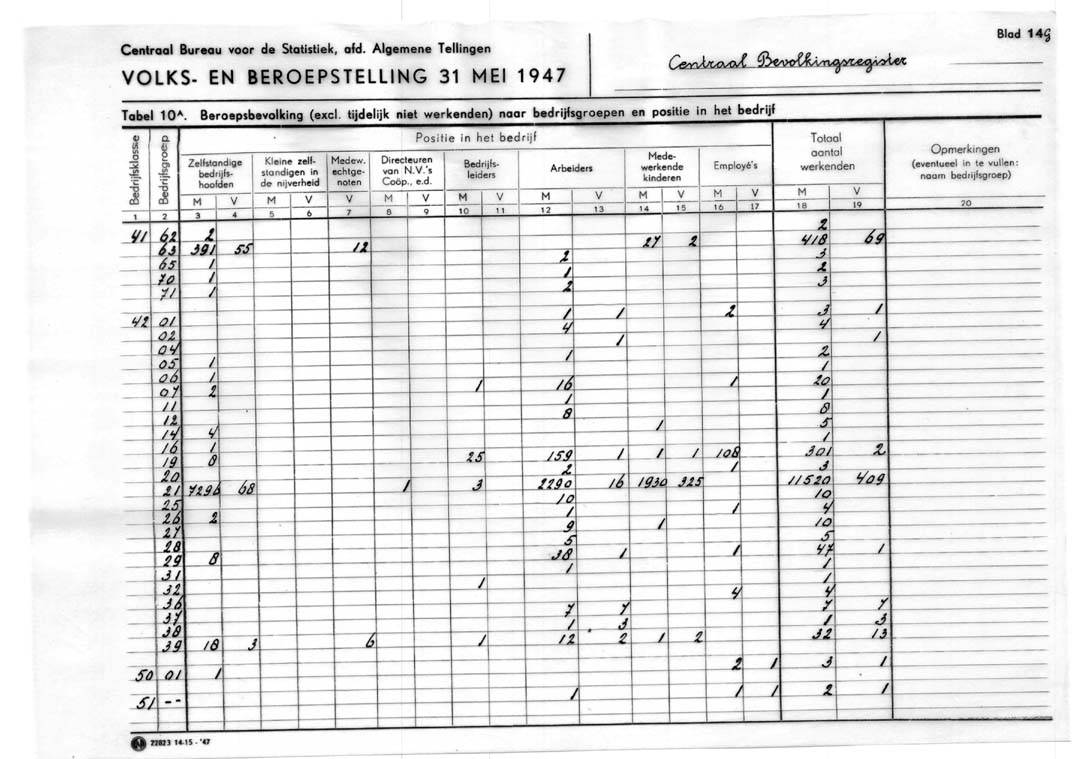 Blad 14G
Centraal Bureau voor de Statistiek, afd. Algemene Tellingen
VOLKS- EN BEROEPSTELLING 31 MEI 1947
Centraal Bevolkingsregister
Tabel 10A. Beroepsbevolking (excl. tijdelijk niet werkenden) naar bedrijfsgroepen en positie in het bedrijf
Bedrijfsklasse
Bedrijfsgroep
Positie in het bedrijf
Zelfstandige bedrijfs-hoofden
Kleine zelf-standigen in de nijverheid
Medew. echtge-noten
Directeuren van N.V.'s Coöp., e.d.
Bedrijfs-leiders
Arbeiders
Mede-werkende kinderen
Employé's
Totaal aantal werkenden
Opmerkingen (eventueel in te vullen: naam bedrijfsgroep)
M V M V V M V M V M V M V M V M V
1 2 3 4 5 6 7 8 9 10 11 12 13 14 15 16 17 18 19 20
41 62 2 2
63 391 55 12 27 2 418 69
65 1 2 3
70 1 1 2
71 1 2 3
42 01 1 1 2 3 1
02 4 4
04 1 1
05 1 1 2
06 1 1
07 2 1 16 1 20
11 1 1
12 8 8
14 4 1 5
16 1 1
19 8 25 159 1 1 1 108 301 2
20 2 1 3
21 7296 68 1 3 2290 16 1930 325 11520 409
25 10 10
26 2 1 1 4
27 9 1 10
28 5 5
29 8 38 1 1 47 1
31 1 1
32 1 1
36 4 4
37 7 7 7 7
38 1 3 1 3
39 18 3 6 1 12 2 1 2 32 13
50 01 1 2 1 3 1
51 -- 1 1 1 2 1
22823 14-15 - '47